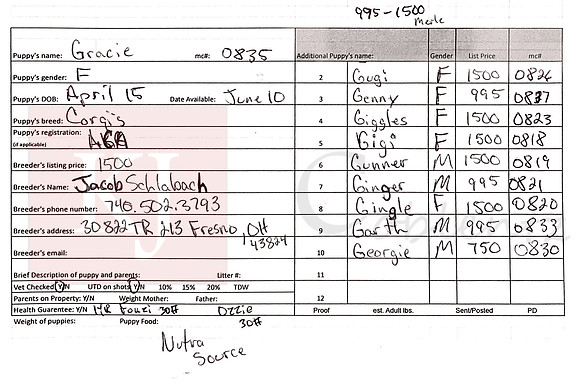 995-1500
Merle
Puppy's name: Gracie mc#: 0835
Additional Puppy's name: Gender List Price mc#
Puppy's gender: F
2 Gugi F 1500 0824
Puppy's DOB: April 15 Date Available: June 10
3 Genny F 995 0837
Puppy's breed: Corgis
4 Giggles F 1500 0823
Puppy's registration:
(if applicable) ACA
5 Gigi F 1500 0818
Breeder's listing price: 1500
6 Gunner M 1500 0819
Breeder's Name: Jacob Schlabach
7 Ginger M 995 0821
Breeder's phone number: 740.502.3793
8 Gingle F 1500 0820
Breeder's address: 30822 TR 213 Fresno, OH
43824
9 Garth M 995 0833
Breeder's email:
10 Georgie M 750 0830
Brief Description of puppy and parents: Litter #:
11
Vet Checked Y/N UTD on shots Y/N 10% 15% 20% TDW
Parents on Property: Y/N Weight Mother: Father:
12
Health Guarentee: Y/N 1YR 30# Ozzie
Proof est. Adult lbs. Sent/Posted PD
Weight of puppies: Puppy Food: 30#
Nutra
Source